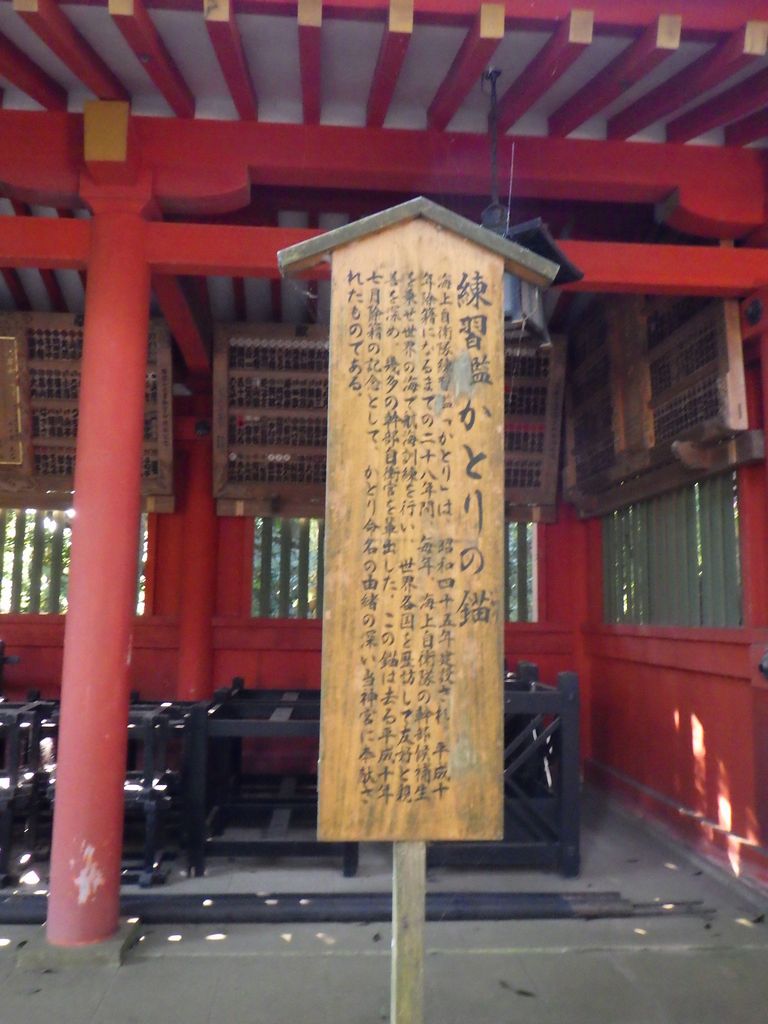 練習艦かとりの錨
海上自衛隊練習艦「かとり」は、昭和四十五年建設され、平成十
年除籍になるまでの二十八年間、毎年、海上自衛隊の幹部候補生
を乗せ世界の海で航海訓練を行い、世界各国を歴訪して友好と親
善を深め、幾多の幹部自衛官を輩出した。この錨は去る平成十年
七月除籍の記念として、かとり命名の由緒の深い当神宮に奉献さ
れたものである。